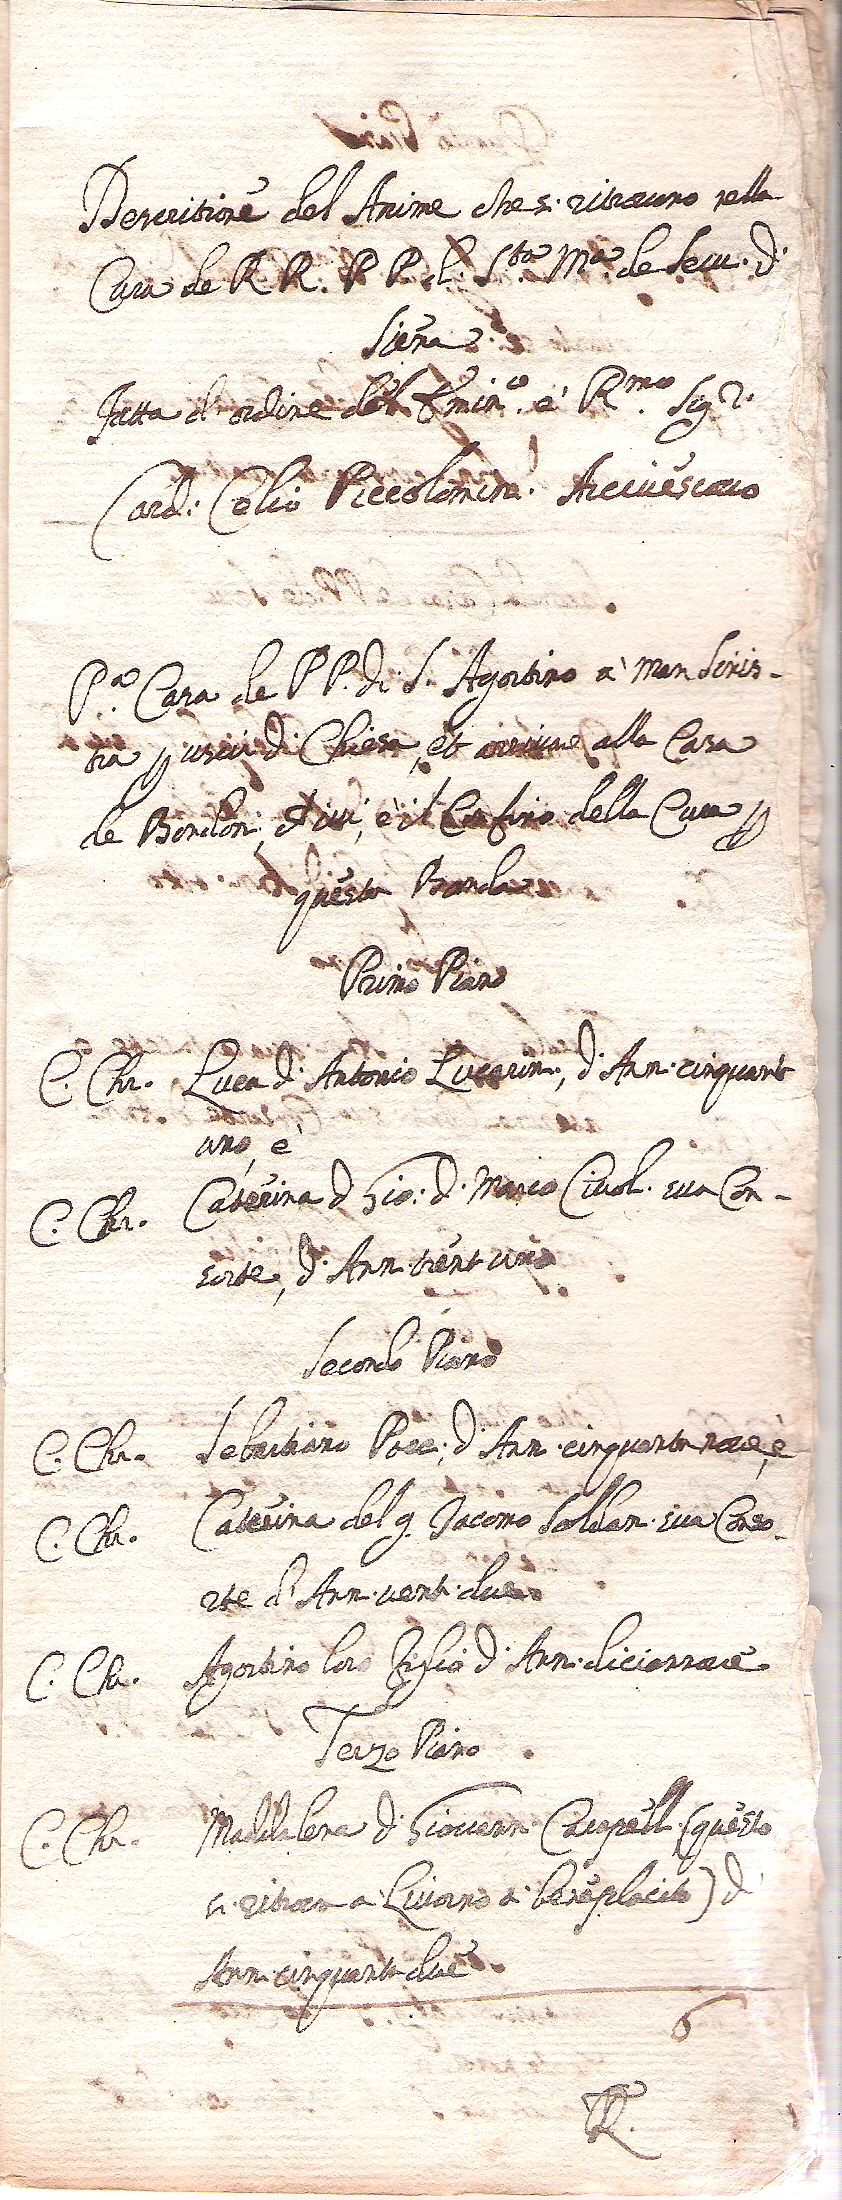 Descritione del Anime che si ritrovano nella
Cura de R.R. P P. di Sta Ma de Serui di
Siena
Fatta d'ordine del Emin.o e R.mo Sig.r
Card: Celio Piccolomini Arciuescouo
P.a Casa de P P. di S. Agostino a man sinis-
tra uscir di Chiesa, et arriua alla Casa
de Bordoni, et iui, è il Confino della Cura
questa Banda
Primo Piano
C. Chr. Luca di Antonio Lucarini, di Anni cinquant
uno, e
C. Chr. Caterina di Gio: di Mario Ciuoli sua Con-
sorte, di Anni trent'uno
Secondo Piano
C. Chr. Sebastiano Pocci, di Anni cinquanta noue, e
C. Chr. Caterina del q. Jacomo Soldani sua Conso-
rte di Anni uenti due
C. Chr. Agostino loro Figlio di Anni diciannoue
Terzo Piano
C. Chr. Maddalena di Giouanni (questo
si ritroua a Liuorno a beneplacito) di
Anni cinquanta due
6